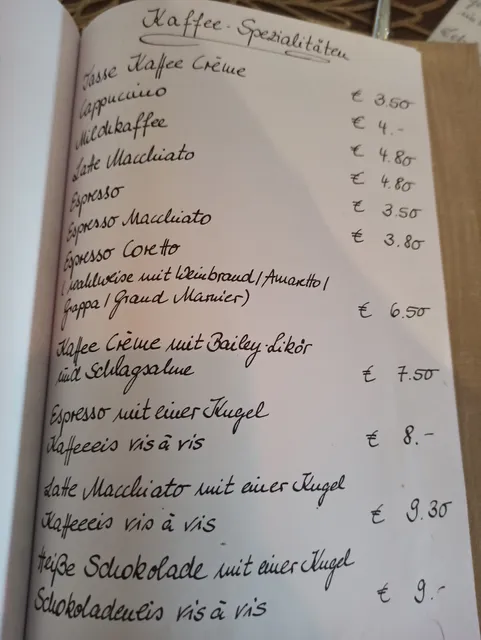 Kaffee-Spezialitäten
Tasse Kaffee Crème € 3.50
Cappuccino € 4.-
Milchkaffee € 4.80
Latte Macchiato € 4.80
Espresso € 3.50
Espresso Macchiato € 3.80
Espresso Coretto
(wahlweise mit Weinbrand/Amaretto/
Grappa/Grand Marnier) € 6.50
Kaffee Crème mit Bailey-Likör
und Schlagsahne € 7.50
Espresso mit einer Kugel
Kaffeeeis vis à vis € 8.-
Latte Macchiato mit einer Kugel
Kaffeeeis vis à vis € 9.30
Heiße Schokolade mit einer Kugel
Schokoladeneis vis à vis € 9.-